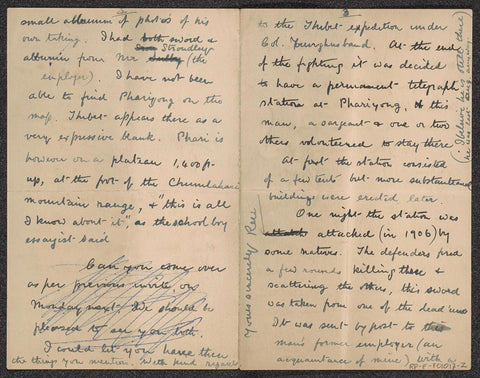 small albumn of photos of his
own taking. I had both sword &
albumn from Mr Stroudley
(the
employer). I have not been
able to find Phariyong on the
map. Thibet appears there as a
very expressive blank. Phari is
however on a plateau 1,400 p-
up, at the foot of the Chumulahari
mountain range, & "this is all
I know about it", as the school boy
essayist said
Can you come over
as per previous invite, on
Monday next. We should be
pleased to see you both.
I could let you have then
the things you mention. With kind regards
Yours sincerely
3
to the Thibet expedition under
Col. Younghusband. At the end
of the fighting it was decided
to have a permanent telegraph
station at Phariyong, & this
man, a sargeant & one or two
others volunteered to stay there
At first the station consisted
of a few tents but more substantial
buildings were erected later.
One night the station was
attacked (in 1906) by
some natives. The defenders fired
a few rounds killing three &
scattering the others, this sword
was taken from one of the dead 'uns
It was sent by post to this
man's former employer (an
acquaintance of mine) with a
(I believe he is still there)
RP-F-F01017-Z